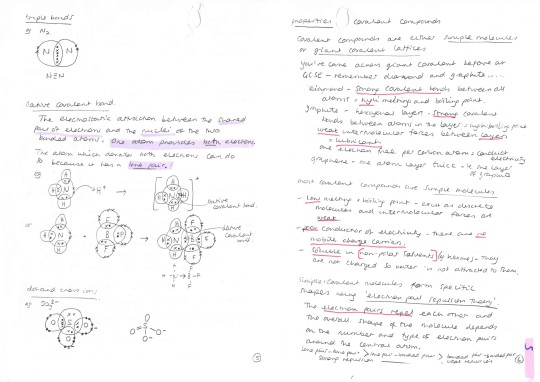 triple bonds
eg N₂
N N
N≡N
Dative covalent bond.
The electrostatic attraction between the shared
pair of electrons and the nuclei of the two
bonded atoms. One atom provides both electrons.
The atom which donates both electrons can do
so because it has a lone pair.
eg
H
H N H
H
+ H⁺
H
H N H
H
+
dative
covalent bond.
or
H
H N
H
F
F B
F
H F
H N B F
H F
dative
covalent
bond.
H F
H N B F
H F
eg SO₃²⁻
O S O
O
O S O⁻
O⁻
⑤
properties of covalent compounds
Covalent compounds are either simple molecules
or giant covalent lattices
you've come across giant covalent before at
GCSE - remember diamond and graphite....
diamond - strong covalent bonds between all
atoms = high melting and boiling point.
graphite - hexagonal layers - strong covalent
bonds between atoms in the layer = high boiling point
weak intermolecular forces between layers
= lubricant
one electron free per carbon atom = conduct
electricity
graphene - one atom layer thick - ie one layer
of graphite
most covalent compounds are simple molecules
- Low melting + boiling point - exist as discrete
molecules and intermolecular forces are
weak
- poor conductor of electricity - there are no
mobile charge carriers.
- soluble in non-polar solvents (eg hexane) - they
are not charged so water is not attracted to them.
Simple covalent molecules form specific
shapes using 'electron pair repulsion theory'.
The electron pairs repel each other and
the overall shape of the molecule depends
on the number and type of electron pairs
around the central atom.
lone pair - lone pair > lone pair - bonded pair > bonded pair - bonded pair
strong repulsion weak repulsion
⑥